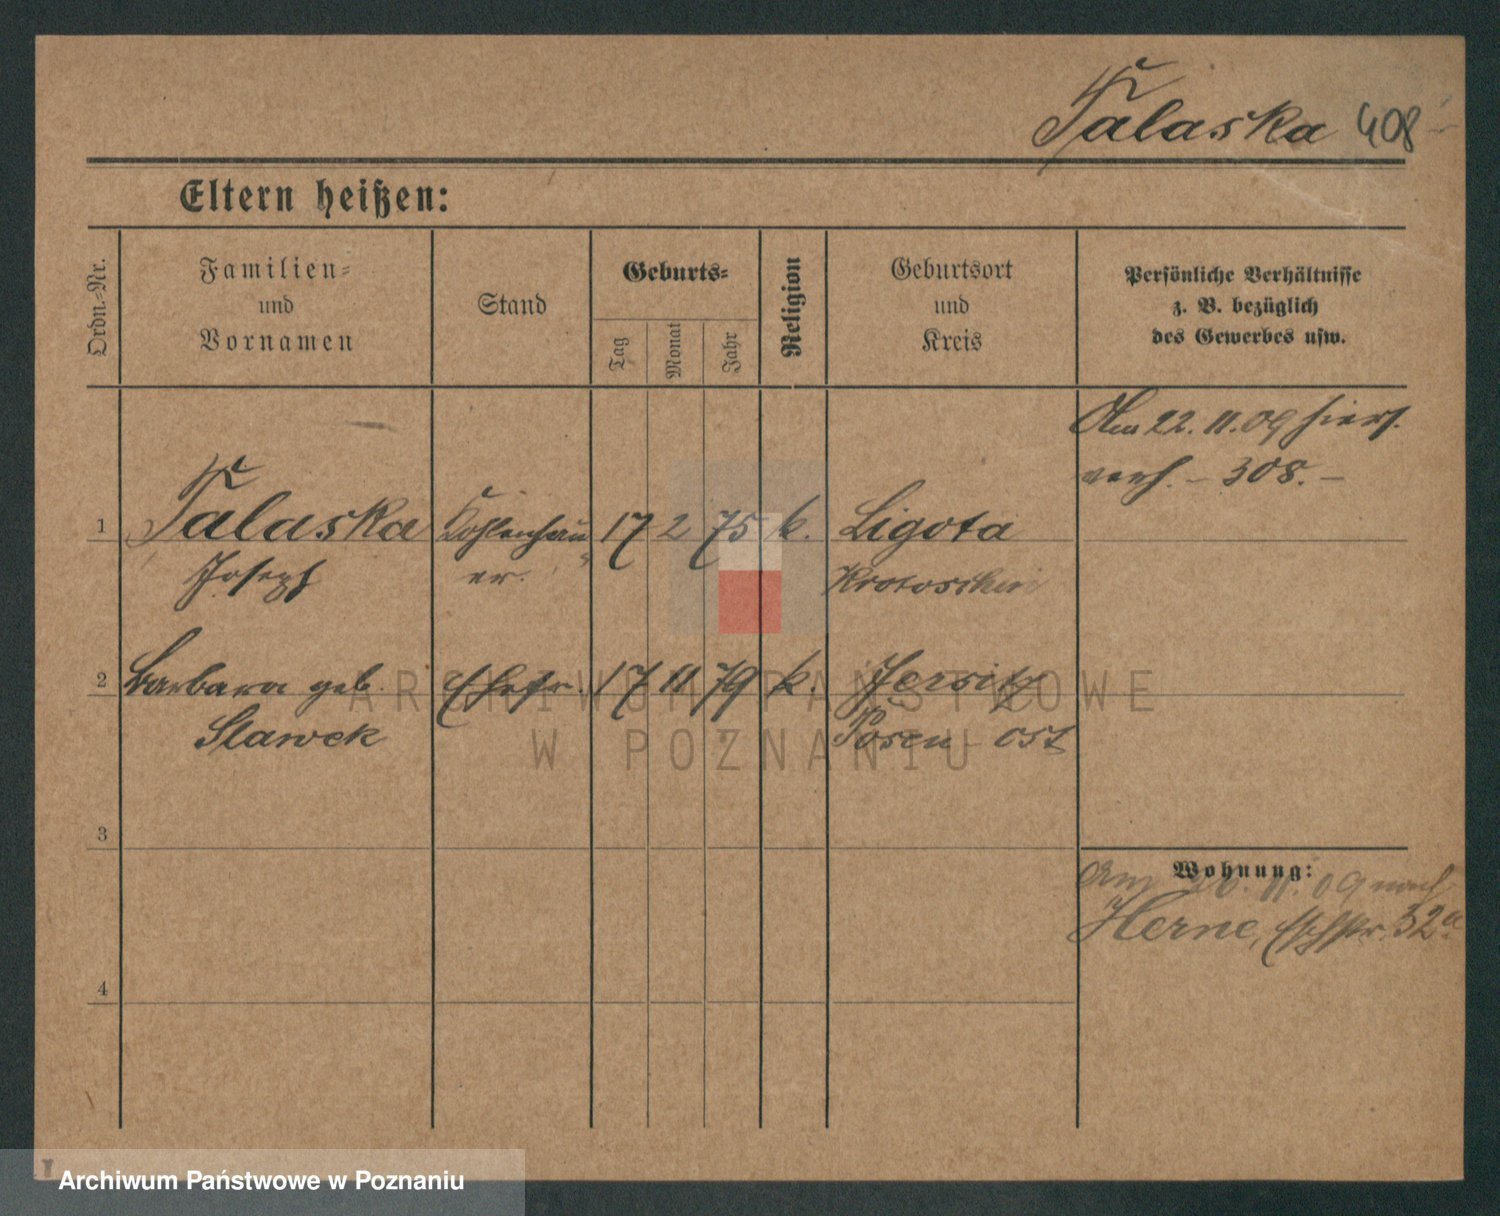 Talaska 408
Eltern heißen:
Ordn.-Nr.
Familien-
und
Vornamen
Stand
Geburts-
Tag
Monat
Jahr
Religion
Geburtsort
und
Kreis
Persönliche Verhältnisse
z. B. bezüglich
des Gewerbes usw.
Am 22. 11. 09 hiers.
verh. - 308. -
1 Talaska Kohlenhau 17 2 75 k. Ligota
Joseph er. Krotoschin
2 Barbara geb. Ehefr. 17 11 79 k. Jersitz
Slawek Posen - ost
3
Wohnung:
Am 26. 11. 09 nach
Herne, 32a
4
ARCHIWUM PAŃSTWOWE
W POZNANIU
Archiwum Państwowe w Poznaniu